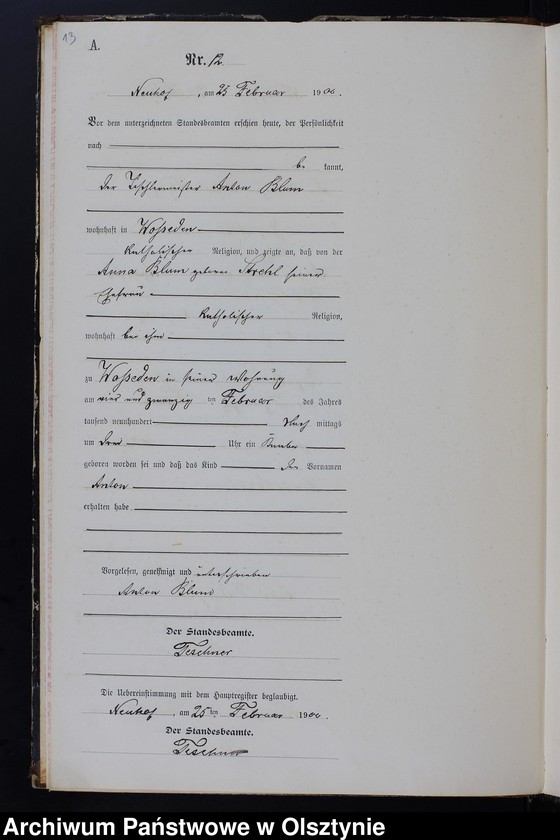 13
A.
Nr. 12
Neuhof, am 25 Februar 1900.
Vor dem unterzeichneten Standesbeamten erschien heute, der Persönlichkeit
nach
be kannt,
der Tischlermeister Anton Blum
wohnhaft in Wosseden
katholischer Religion, und zeigte an, daß von der
Anna Blum geborene Strehl seiner
Ehefrau
katholischer Religion,
wohnhaft bei ihm
zu Wosseden in seiner Wohnung
am vier und zwanzig ten Februar des Jahres
tausend neunhundert Nach mittags
um drei Uhr ein Knabe
geboren worden sei und daß das Kind den Vornamen
Anton
erhalten habe
Vorgelesen, genehmigt und unterschrieben
Anton Blum
Der Standesbeamte.
Teschner
Die Uebereinstimmung mit dem Hauptregister beglaubigt.
Neuhof, am 25ten Februar 1900.
Der Standesbeamte.
Teschner
Archiwum Państwowe w Olsztynie